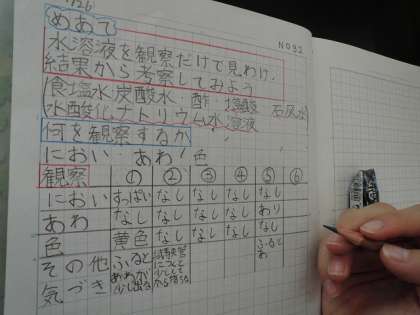 1/26
めあて
No32
水溶液を観察だけで見わけ、
結果から考察してみよう
食塩水 炭酸水・酢・塩酸 石灰水
水酸化ナトリウム水溶液
何を観察するか
におい・あわ・色
観察 ① ② ③ ④ ⑤ ⑥
におい すっぱい なし なし なし なし
あわ なし なし なし なし あり
色 黄色 なし なし なし なし
その他 ふると
気づき あわが 少し出る
ふると